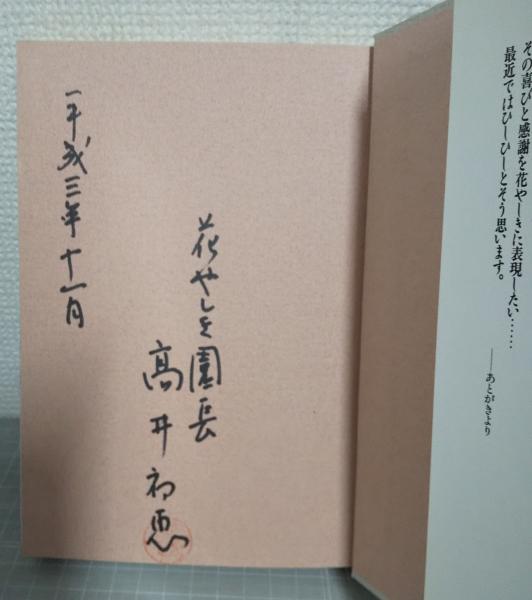 その喜びと感謝を花やしきに表現したい……
最近ではひしひしとそう思います。
——あとがきより
花やしき園長
高井初恵
平成三年十一月